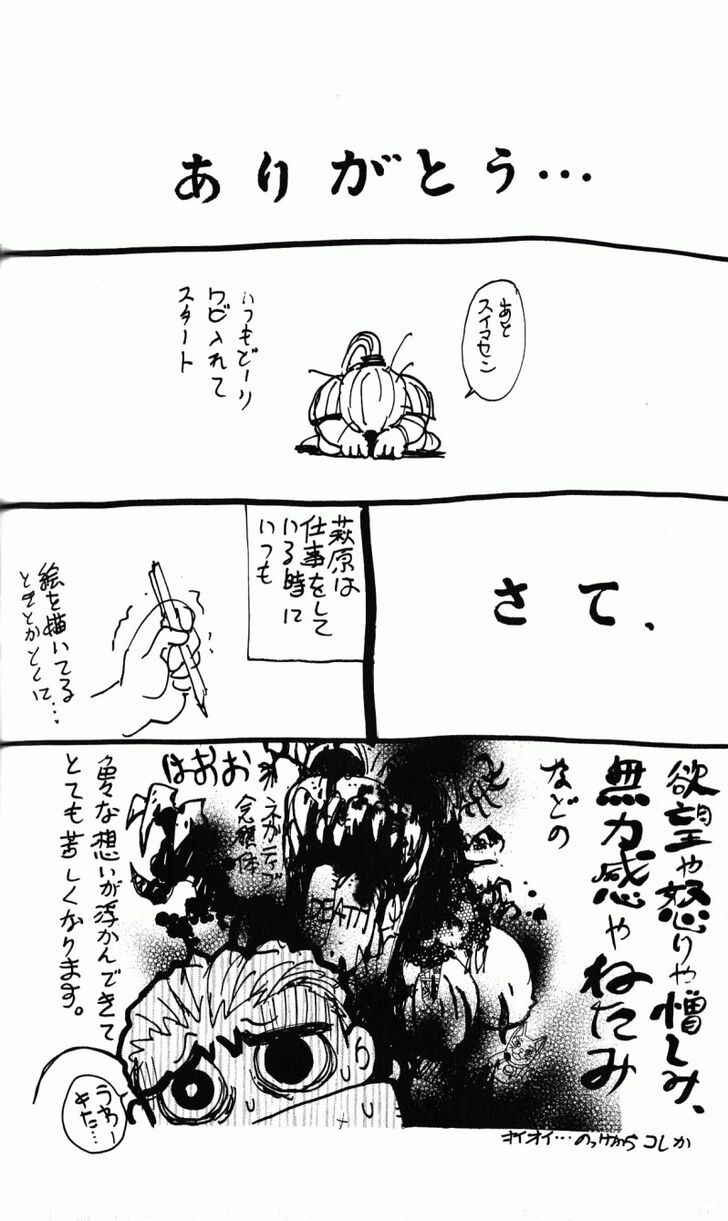 ありがとう…
あと
スイマセン
いつもどーり
ワビ入れて
スタート
さて、
萩原は
仕事をして
いる時に
いつも
絵を描いてる
ときとかとくに…
欲望や怒りや憎しみ、
無力感やねたみ
などの
DEATH
はおおお
色々な想いが浮かんできて
とても苦しくなります。
うわー
きた…
オイオイ…のっけからコレか